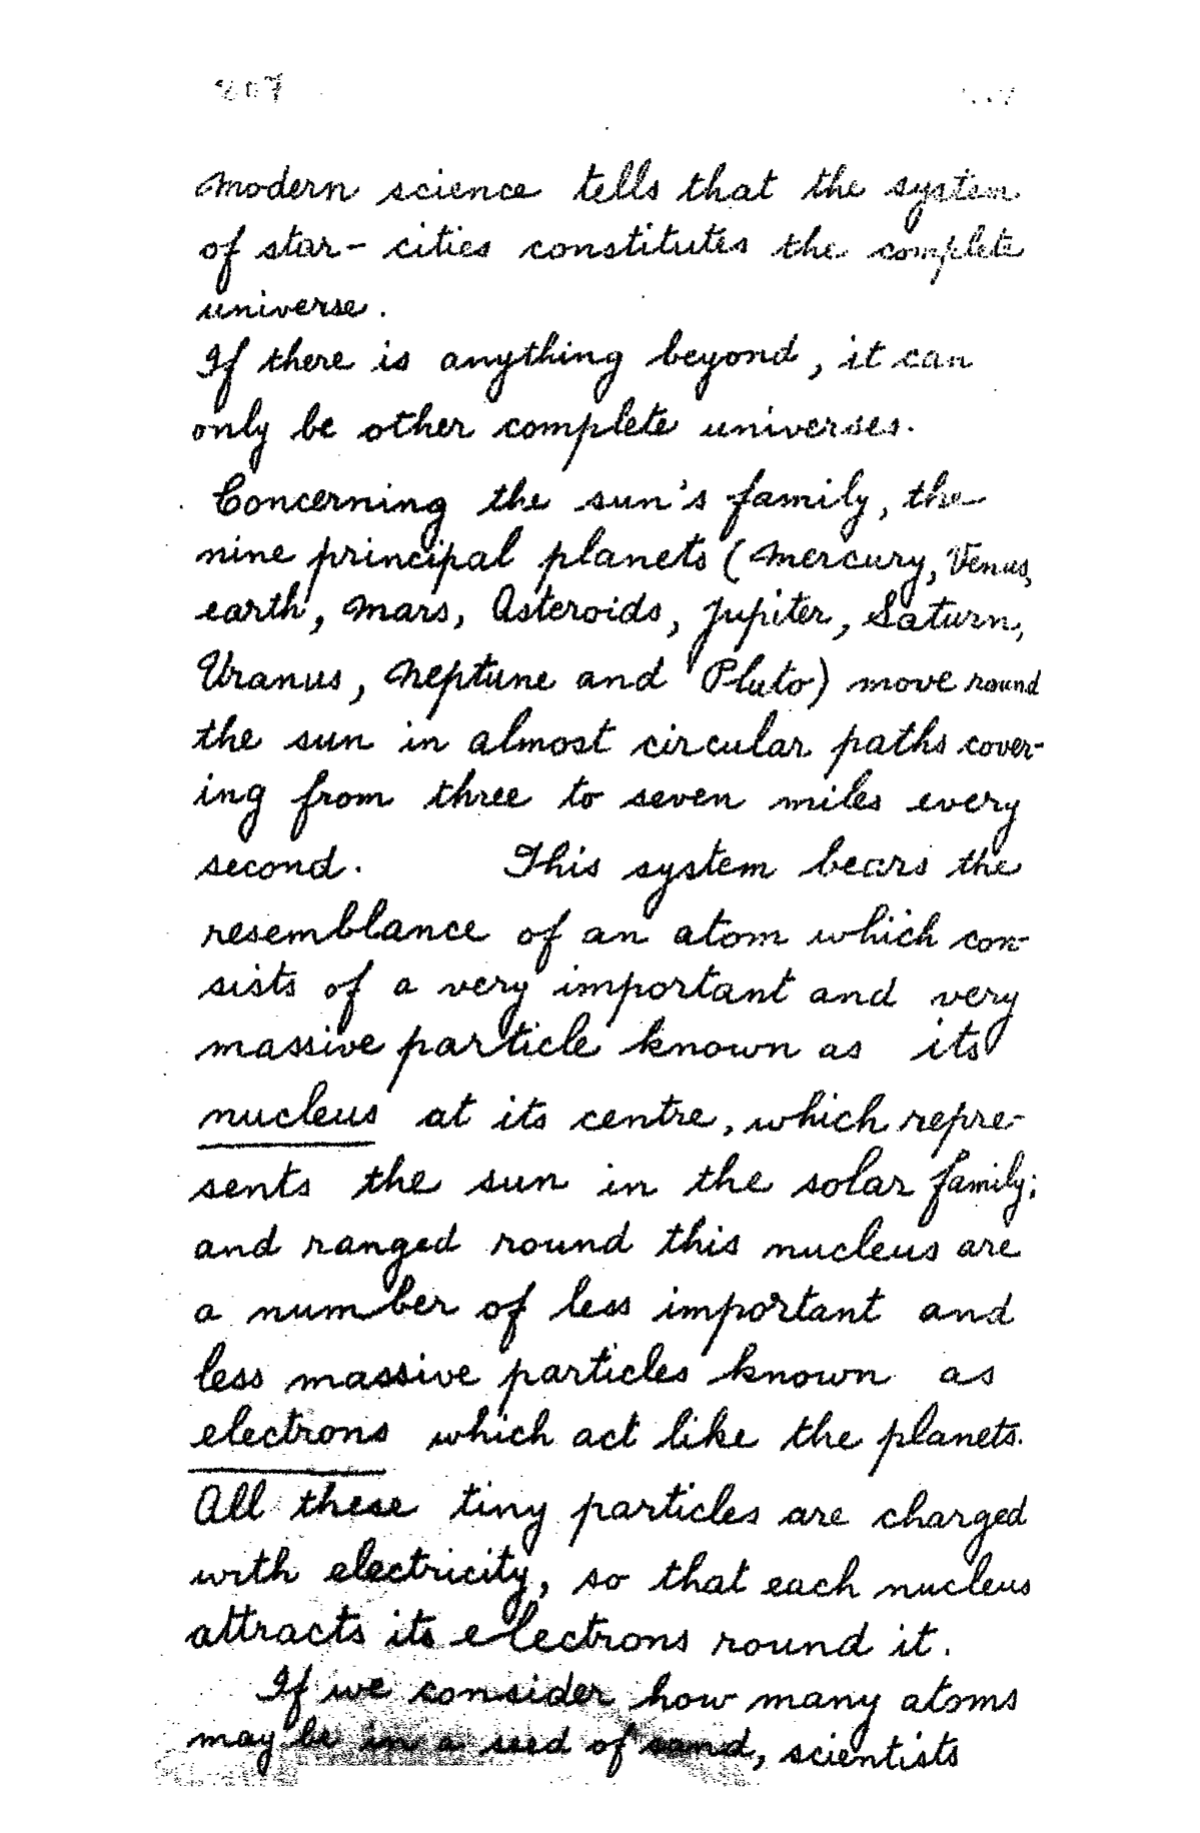 207
Modern science tells that the system
of star-cities constitutes the complete
universe.
If there is anything beyond, it can
only be other complete universes.
Concerning the sun's family, the
nine principal planets (Mercury, Venus,
earth, Mars, Asteroids, Jupiter, Saturn,
Uranus, Neptune and Pluto) move round
the sun in almost circular paths cover-
ing from three to seven miles every
second. This system bears the
resemblance of an atom which con-
sists of a very important and very
massive particle known as its
nucleus at its centre, which repre-
sents the sun in the solar family;
and ranged round this nucleus are
a number of less important and
less massive particles known as
electrons which act like the planets.
All these tiny particles are charged
with electricity, so that each nucleus
attracts its electrons round it.
If we consider how many atoms
may be in a seed of sand, scientists